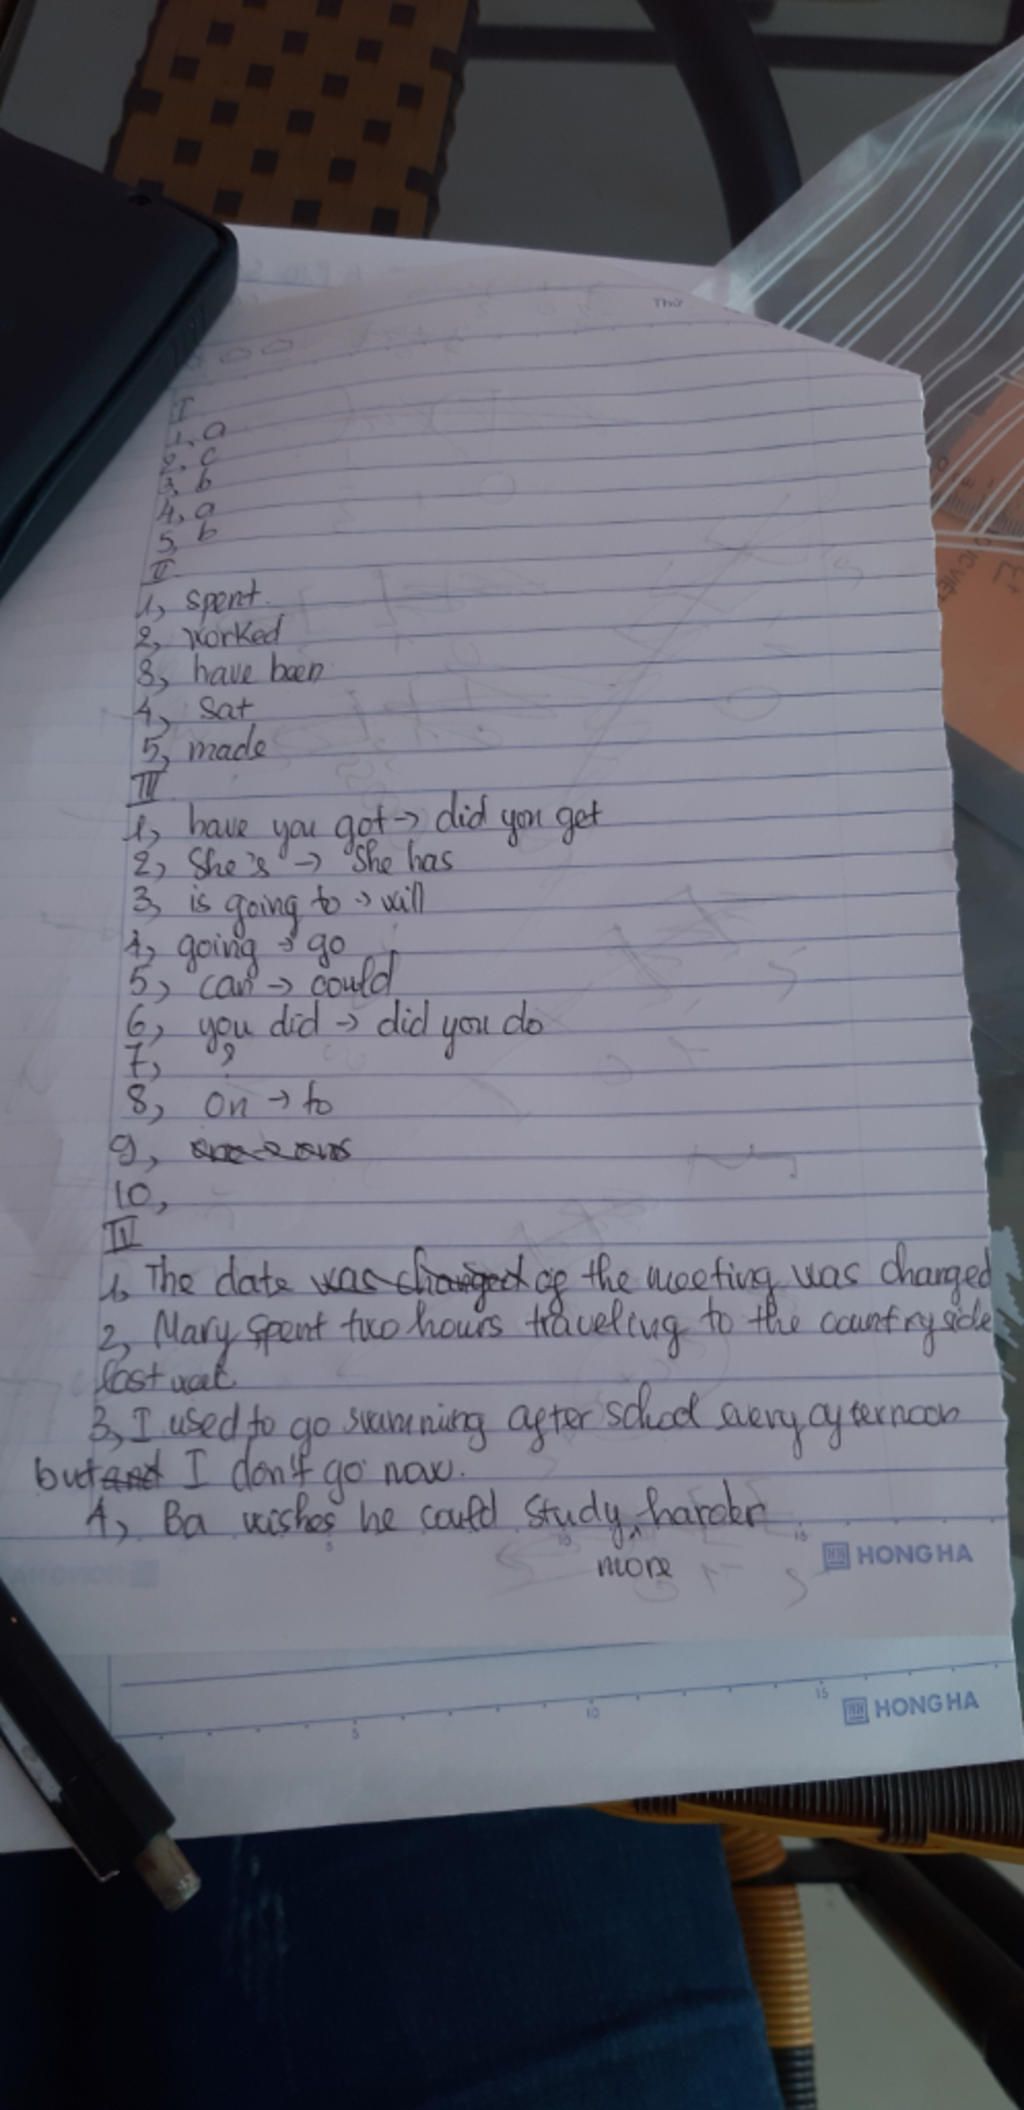 Thứ
I
1, a
2, c
3, b
4, a
5, b
II
1, spent
2, worked
3, have been
4, sat
5, made
III
1, have you got → did you get
2, She's → She has
3, is going to → will
4, going → go
5, can → could
6, you did → did you do
7, ?
8, on → to
9,
10,
IV
1, The date was changed of the meeting was changed
2, Mary spent two hours traveling to the countryside
last
3, I used to go swimming after school every afternoon
but and I don't go now.
4, Ba wishes he could study harder
more
5 10 15
HONG HA
5 10 15
HONG HA